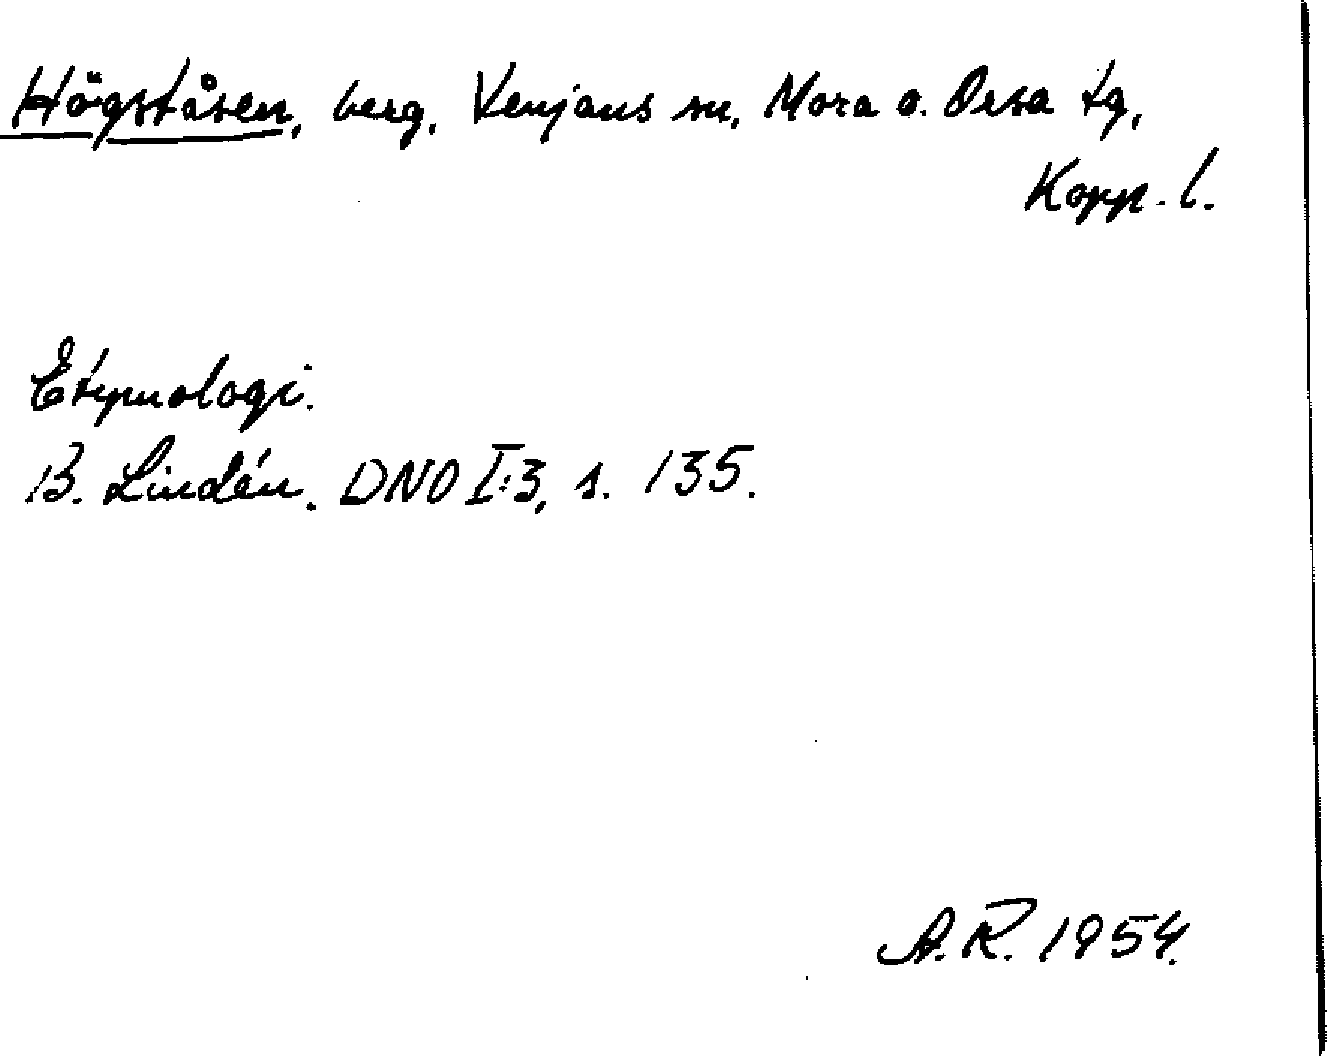 Högståsen, berg, Venjans sn, Mora o. Orsa tg,
Kopp. l.
Etymologi.
B. Lindén. DNO I:3, s. 135.
A.R. 1954.